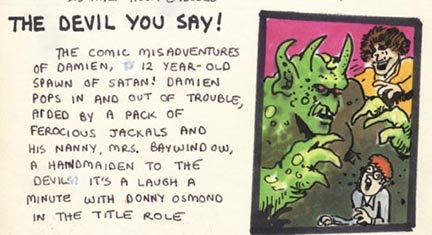 THE DEVIL YOU SAY!
THE COMIC MISADVENTURES
OF DAMIEN, 12 YEAR-OLD
SPAWN OF SATAN! DAMIEN
POPS IN AND OUT OF TROUBLE,
AIDED BY A PACK OF
FEROCIOUS JACKALS AND
HIS NANNY, MRS. BAYWINDOW,
A HANDMAIDEN TO THE
DEVIL! IT'S A LAUGH A
MINUTE WITH DONNY OSMOND
IN THE TITLE ROLE